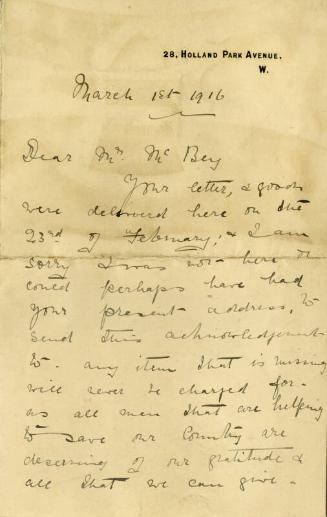 28, HOLLAND PARK AVENUE,
W.
March 1st 1916
Dear Mr. Mc Bey
Your letter, & goods
were delivered here on the
23rd of February; & I am
sorry I was not here or
could perhaps have had
your present address, to
send this acknowledgement
to - any item that is missing
will never be charged for -
as all men that are helping
to save our Country are
deserving of our gratitude &
all that we can give -